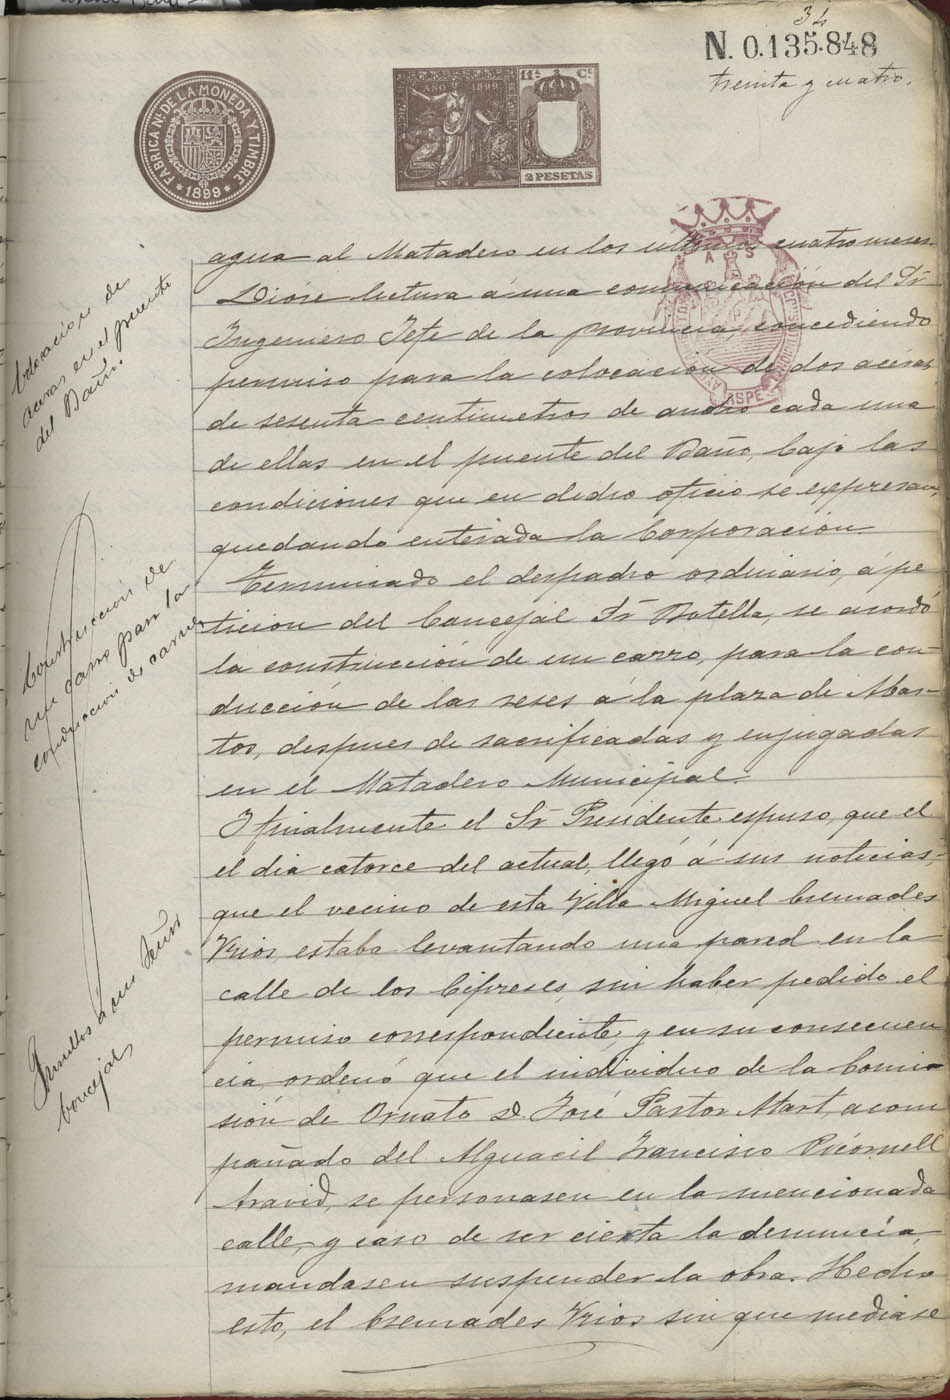 34
N. 0.135.848
treinta y cuatro.
FÁBRICA Nal DE LA MONEDA Y TIMBRE
* 1899 *
AÑO 1899
11ª Cl
2 PESETAS
Colocacion de
aceras en el puente
del Baño.
Construccion de
un carro para la
conduccion de carnes
Insultos a un Señor
Concejal
agua al Matadero en los ultimos cuatro meses.
Dióse lectura á una comunicación del Sr
Ingeniero Jefe de la provincia, concediendo
permiso para la colocación de dos aceras
de sesenta centimetros de ancho cada una
de ellas en el puente del Baño, bajo las
condiciones que en dicho oficio se expresan,
quedando enterada la Corporación.
Terminado el despacho ordinario, á pe
ticion del Concejal Sr Botella, se acordó
la construcción de un carro, para la con-
ducción de las reses á la plaza de Abas-
tos, despues de sacrificadas y enjugadas
en el Matadero Municipal.
Y finalmente el Sr Presidente espuso, que el
el dia catorce del actual, llegó á sus noticias-
que el vecino de esta Villa Miguel Cremades
Urios estaba levantando una pared en la
calle de los Cipreses, sin haber pedido el
permiso correspondiente, y en su consecuen
cia ordenó que el individuo de la Comi-
sión de Ornato D. José Pastor Mart, acom
pañado del Alguacil Francisco Picornell
David, se personasen en la mencionada
calle, y caso de ser cierta la denuncia,
mandasen suspender la obra. Hecho
esto, el Cremades Urios sin que mediase